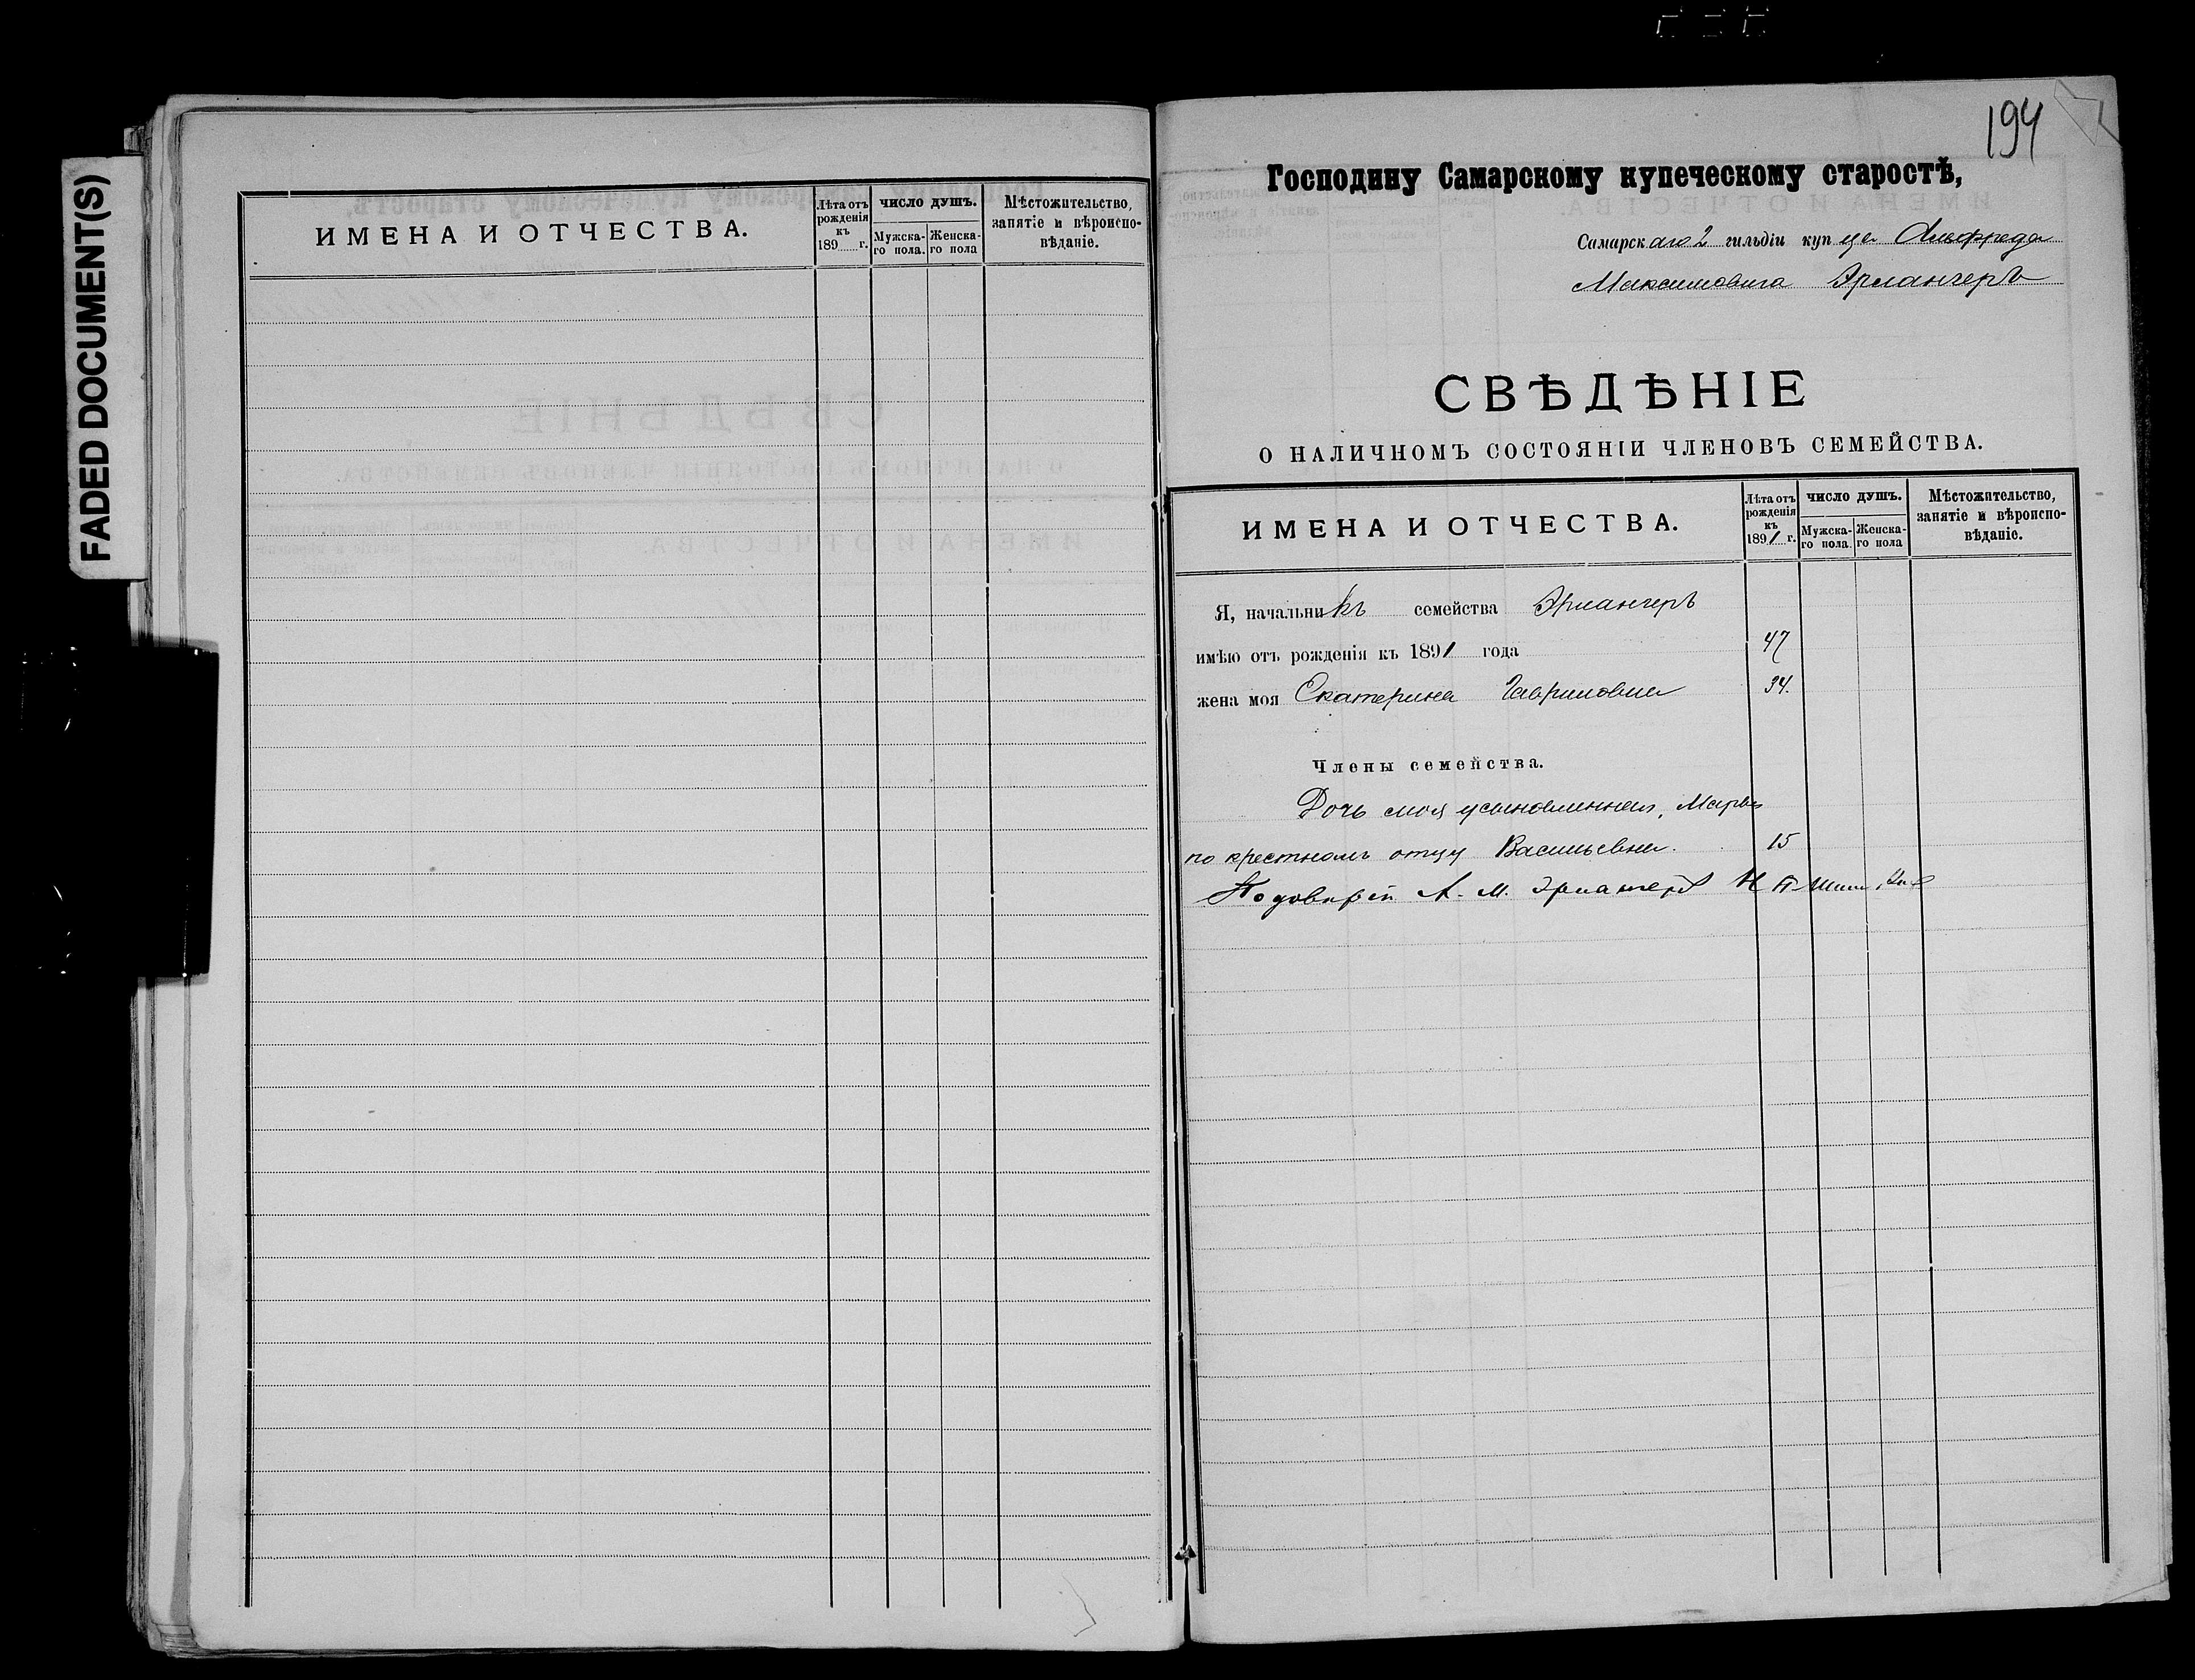 FADED DOCUMENT(S)
ИМЕНА И ОТЧЕСТВА.
Лѣта отъ рожденія къ 189 г.
ЧИСЛО ДУШЪ.
Мужска-го пола.
Женска-го пола
Мѣстожительство, занятіе и вѣроиспо-вѣданіе.
194
Господину Самарскому купеческому старостѣ,
Самарскаго 2 гильдіи купца Альфреда
Максимовича Эрлангеръ
СВѢДѢНІЕ
О НАЛИЧНОМЪ СОСТОЯНІИ ЧЛЕНОВЪ СЕМЕЙСТВА.
ИМЕНА И ОТЧЕСТВА.
Лѣта отъ рожденія къ 1891 г.
ЧИСЛО ДУШЪ.
Мужска-го пола.
Женска-го пола
Мѣстожительство, занятіе и вѣроиспо-вѣданіе.
Я, начальникъ семейства Эрлангеръ
имѣю отъ рожденія къ 1891 года 47
жена моя Екатерина Гавриловна 34.
Члены семейства.
Дочь моя усыновленная, Марья
по крестномъ отцу Васильевна. 15
По довѣрію А. М. Эрлангеръ Н П